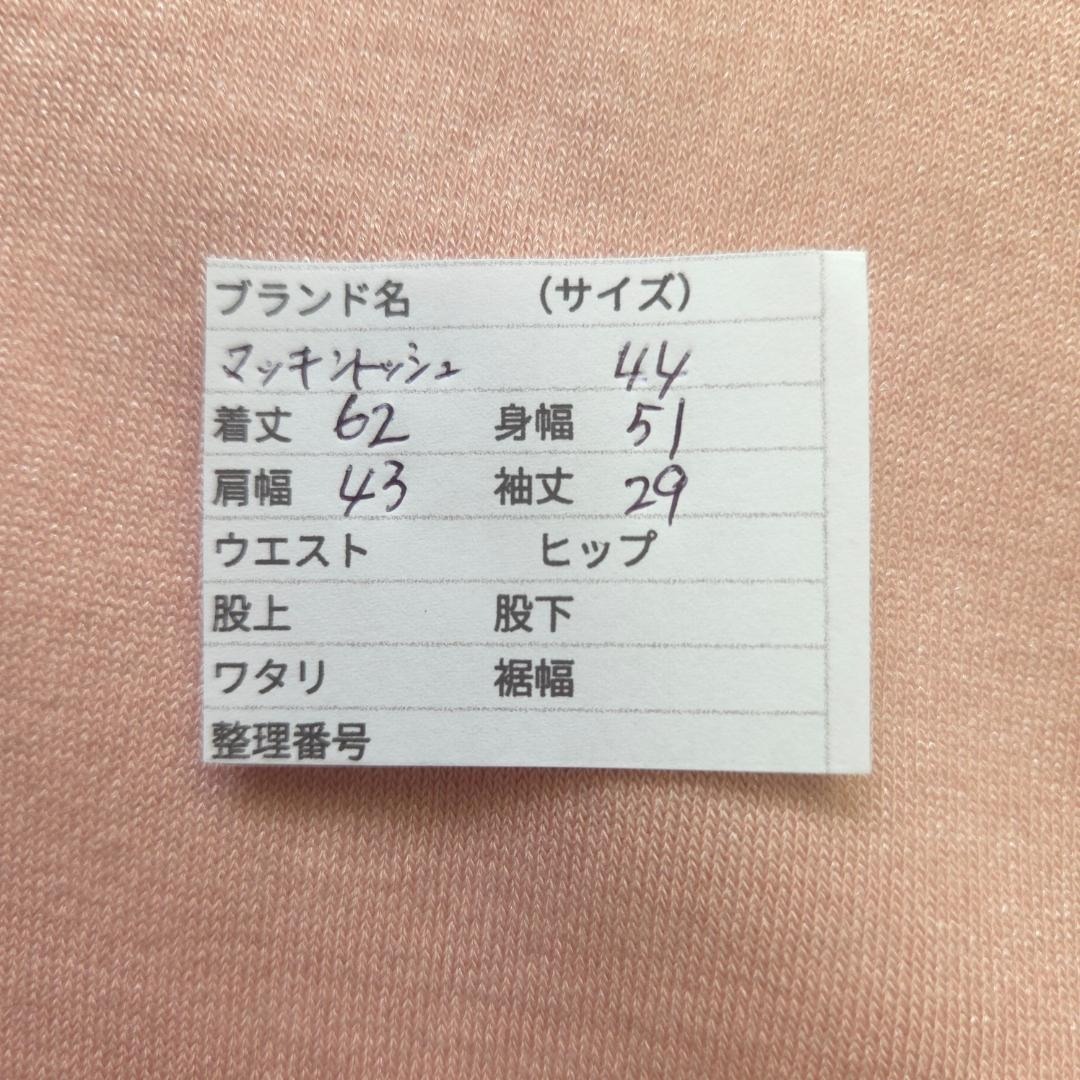 ブランド名 （サイズ）
マッキントッシュ 44
着丈 62 身幅 51
肩幅 43 袖丈 29
ウエスト ヒップ
股上 股下
ワタリ 裾幅
整理番号